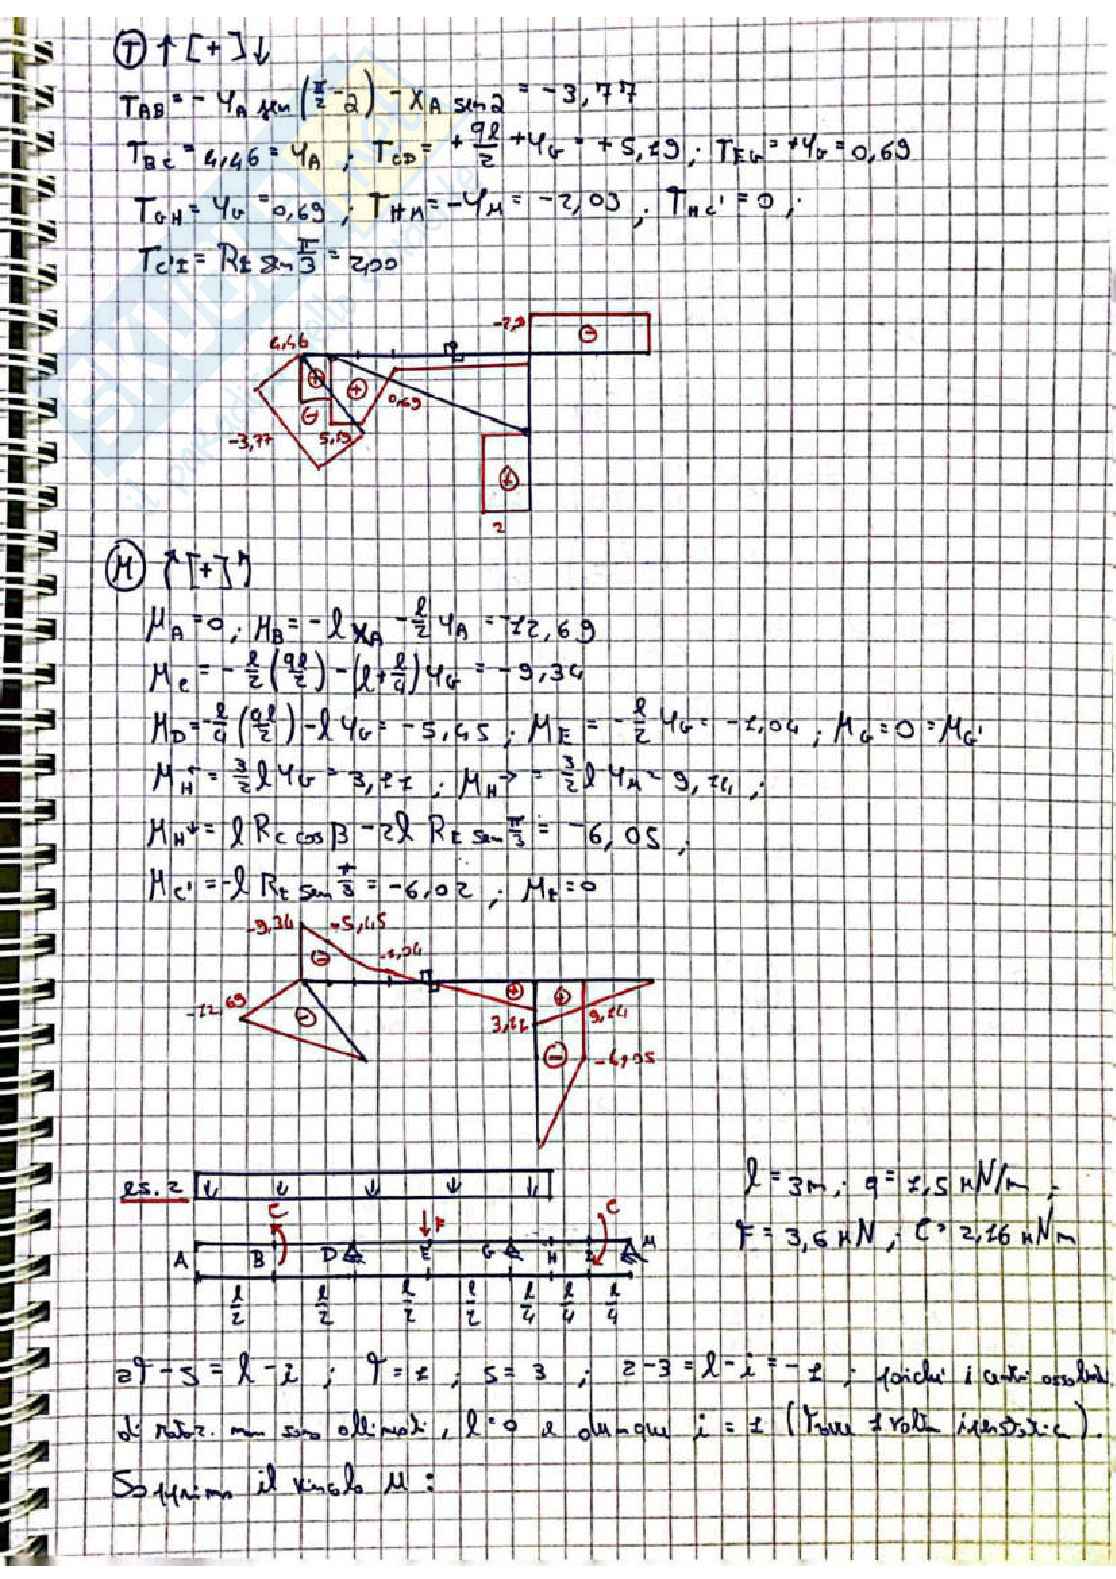 Ⓣ ↑[+]↓
T_AB = - Y_A sen(π/2 - 2) - X_A sen 2 = -3,77
T_BC = 4,46 = Y_A ; T_CD = + ql/2 + Y_G = +5,19 ; T_EG = +Y_G = 0,69
T_GH = Y_G = 0,69 ; T_HM = -Y_M = -2,03 ; T_HC' = 0 ;
T_C'I = R_I sen π/3 = 2,00
4,46
⊕ ⊕ ⊖
-3,77
5,19
0,69
⊖
⊕
2
Ⓜ [+]
M_A = 0 ; M_B = -l X_A - l/2 Y_A = -12,69
M_C = - l/2 (ql/2) - (l + l/4) Y_G = -9,34
M_D = - l/4 (ql/2) - l Y_G = -5,45 ; M_E = - l/2 Y_G = -1,04 ; M_G = 0 = M_G'
M_H← = 3/2 l Y_G = 3,11 ; M_H→ = 3/2 l Y_M = 9,14 ;
M_H↓ = l R_C cos β - 2l R_I sen π/3 = -6,05 ;
M_C' = - l R_I sen π/3 = -6,02 ; M_I = 0
-9,34 -5,45
-1,04
-12,69
⊖ ⊖ ⊕ ⊕ ⊖
3,11
9,14
-6,05
es. 2
l = 3m ; q = 1,5 kN/m ;
F = 3,6 kN ; C = 2,16 kNm
C F C
A B D E G H I M
l/2 l/2 l/2 l/2 l/4 l/4 l/4
2T - S = l - i ; T = 1 ; S = 3 ; 2 - 3 = l - i = -1 ; poiché i centri assoluti
di rotaz. non sono allineati, l = 0 e dunque i = 1 (trave 1 volta iperstatica).
Sopprimo il vincolo M :